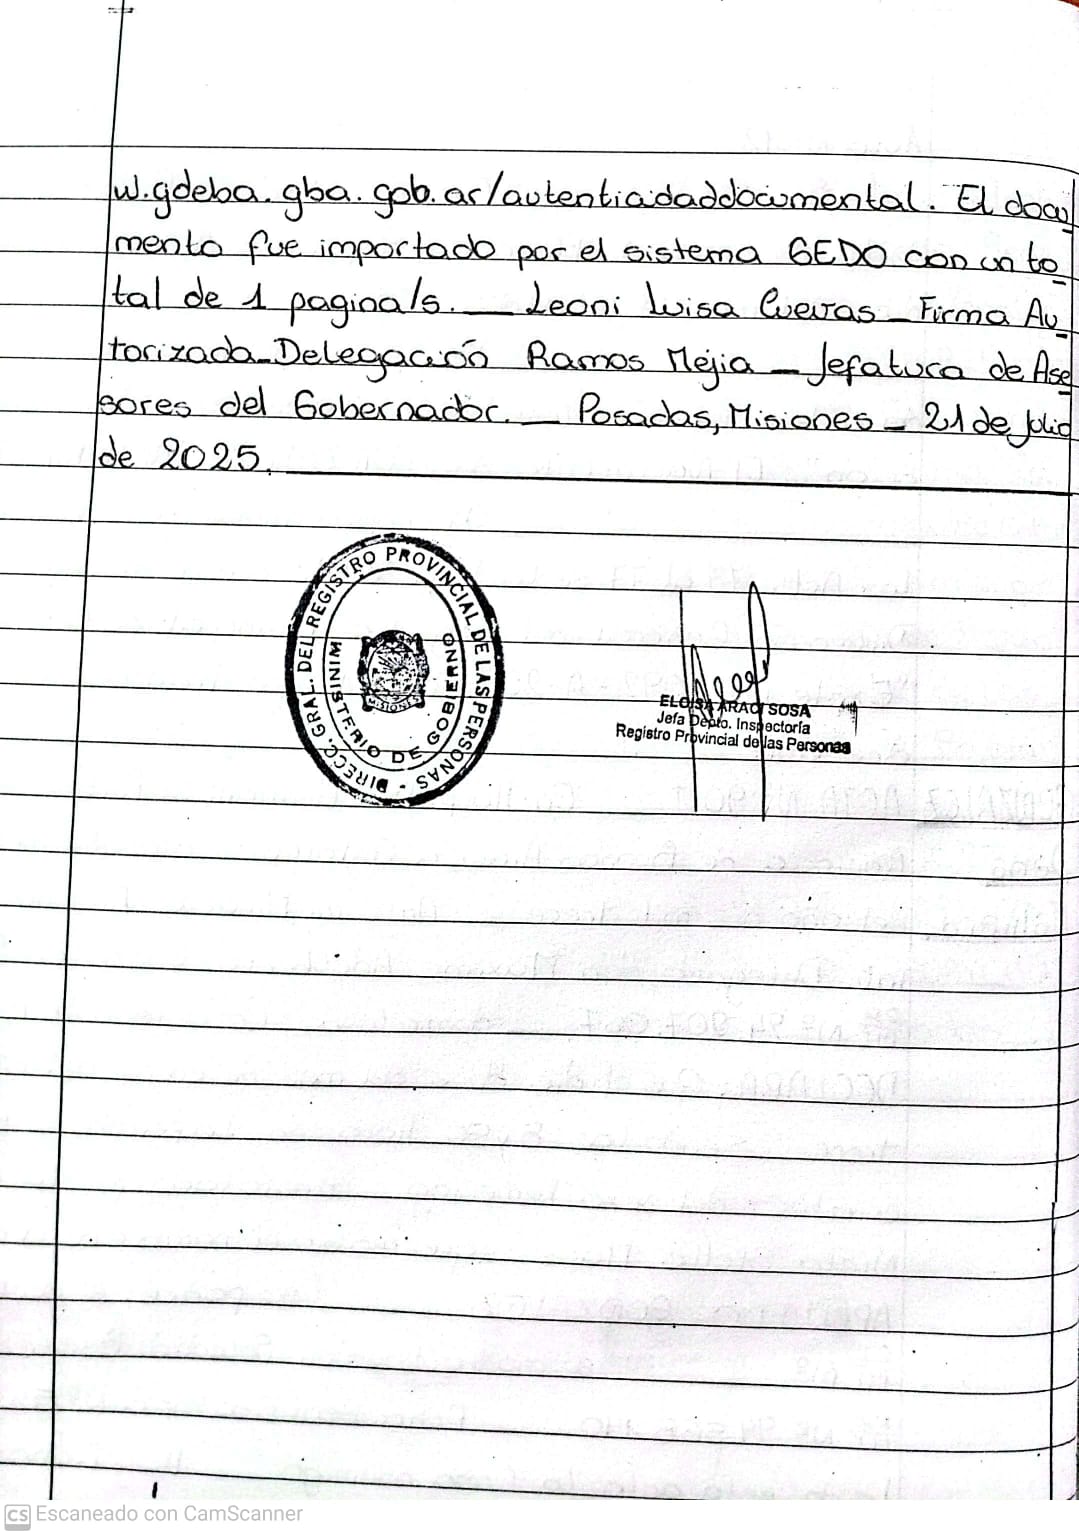 w.gdeba.gba.gob.ar/autenticidaddocumental. El docu
mento fue importado por el sistema GEDO con un to
tal de 1 pagina/s. — Leoni Luisa Cuevas — Firma Au
torizada — Delegación Ramos Mejia — Jefatura de Ase
sores del Gobernador. — Posadas, Misiones — 21 de Julio
de 2025.
DIRECC. GRAL. DEL REGISTRO PROVINCIAL DE LAS PERSONAS -
MINISTERIO DE GOBIERNO
MISIONES
ELOISA ARACI SOSA
Jefa Depto. Inspectoría
Registro Provincial de las Personas
CS Escaneado con CamScanner